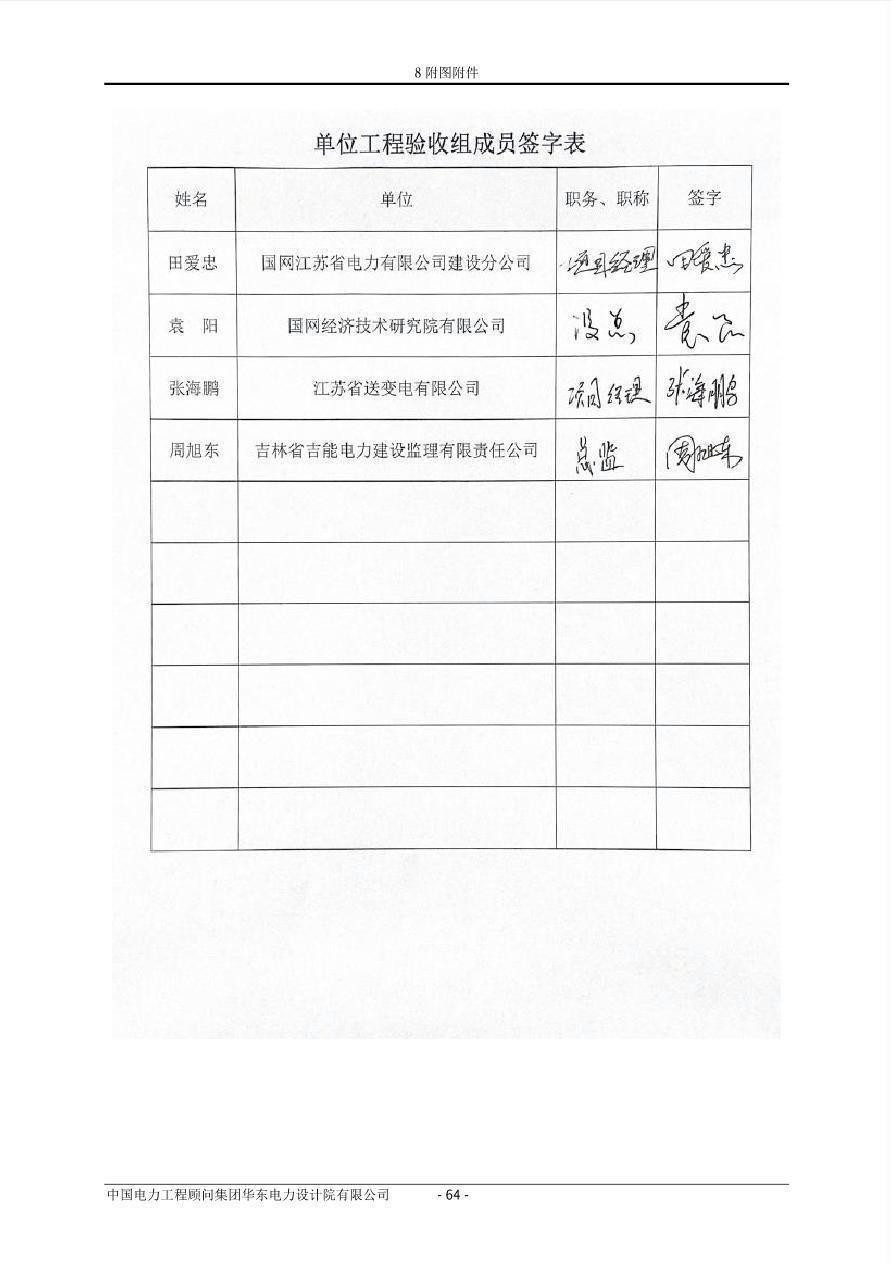 8 附图附件
单位工程验收组成员签字表
姓名 单位 职务、职称 签字
田爱忠 国网江苏省电力有限公司建设分公司 项目经理 田爱忠
袁 阳 国网经济技术研究院有限公司 设总 袁阳
张海鹏 江苏省送变电有限公司 项目经理 张海鹏
周旭东 吉林省吉能电力建设监理有限责任公司 总监 周旭东
中国电力工程顾问集团华东电力设计院有限公司 - 64 -